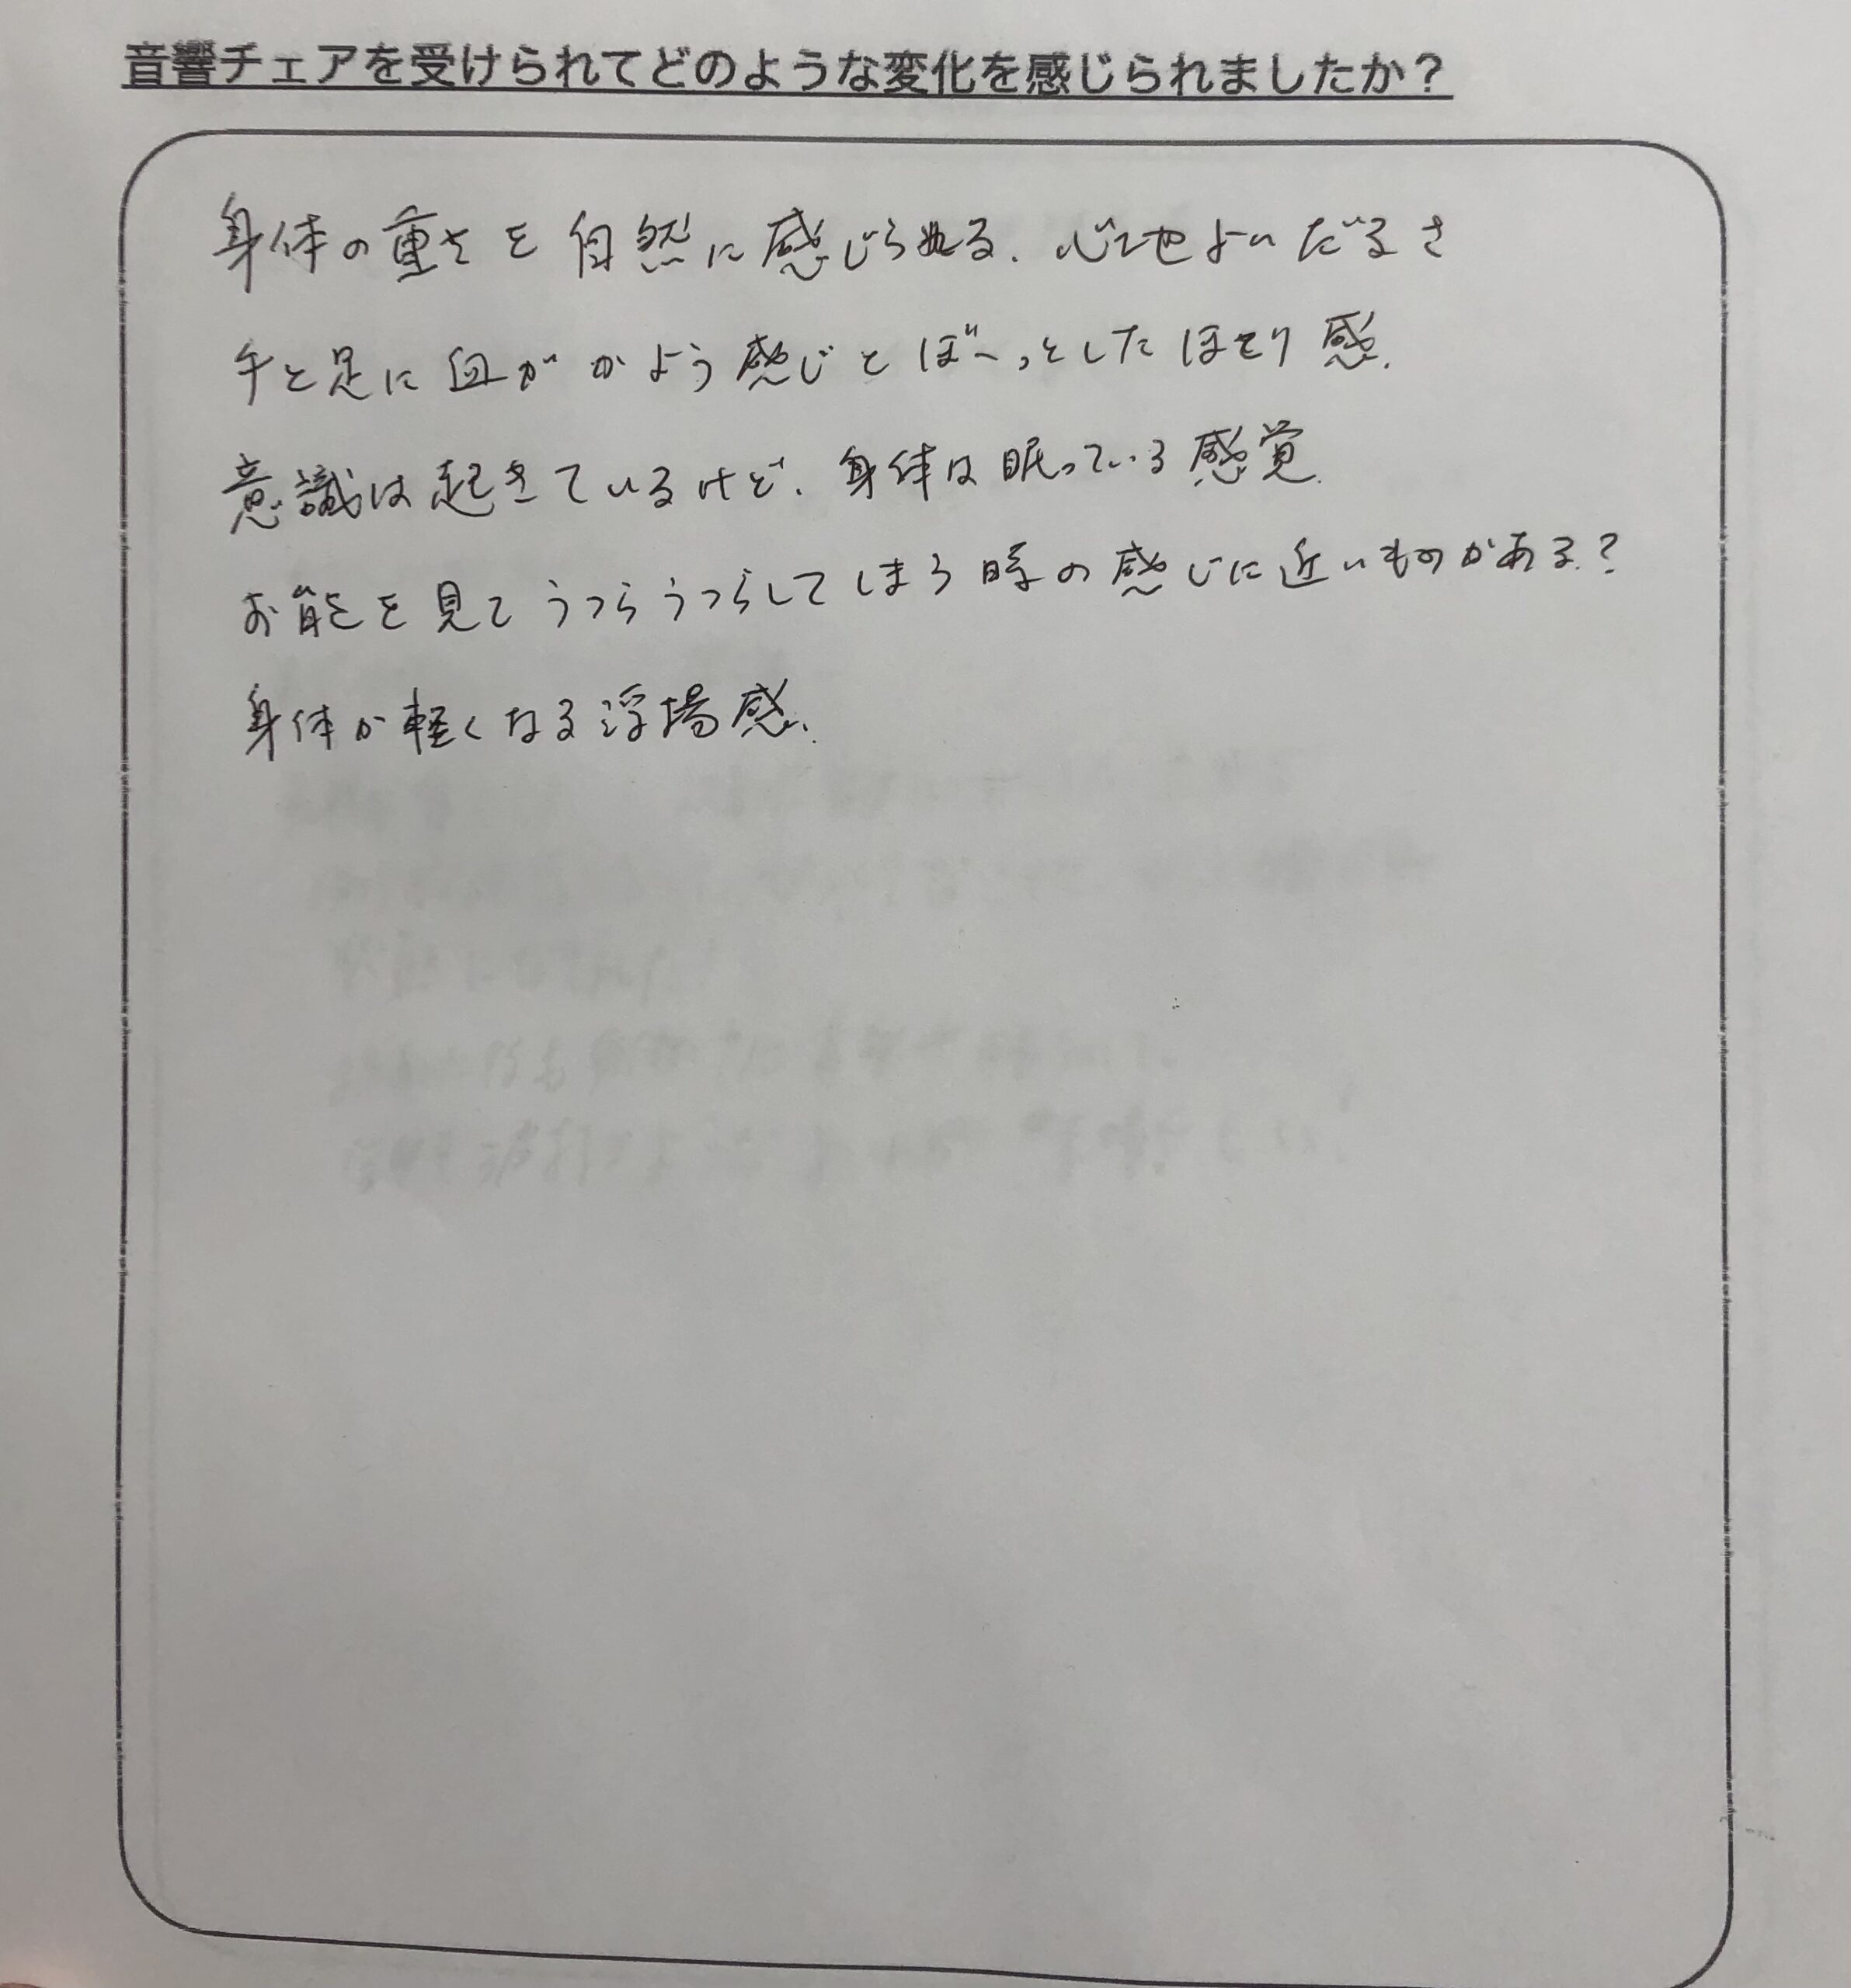 音響チェアを受けられてどのような変化を感じられましたか？
身体の重さを自然に感じられる. 心地よいだるさ
手と足に血がかよう感じとぼーっとしたほてり感.
意識は起きているけど、身体は眠っている感覚.
お能を見てうつらうつらしてしまう時の感じに近いものがある.?
身体が軽くなる浮揚感.